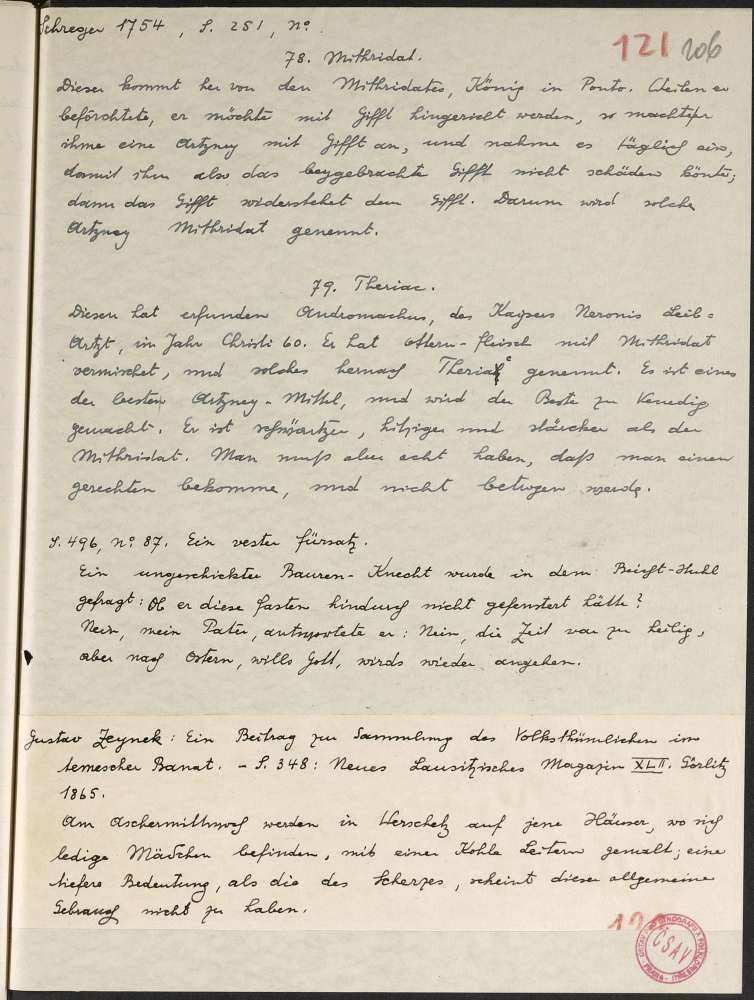 Schreger 1754, S. 251, No.
121 206
78. Mithridat.
Dieser kommt her von den Mithridates, König in Ponto. Weilen er
beförchtete, er möchte mit Gifft hingericht werden, so machte er
ihme eine Artzney mit Gifft an, und nahme es täglich ein,
damit ihm also das beygebrachte Gifft nicht schäden könte;
dann das Gifft widerstehet dem Gifft. Darum wird solche
Artzney Mithridat genennt.
79. Theriac.
Diesen hat erfunden Andromachus, des Kaysers Neronis Leib-
Artzt, im Jahr Christi 60. Er hat Ottern-fleisch mit Mithridat
vermischet, und solches hernach Theriac genennt. Es ist eines
der besten Artzney-Mittel, und wird der Beste zu Venedig
gemacht. Er ist schwärtzer, hitziger und stärcker als der
Mithridat. Man muß aber acht haben, daß man einen
gerechten bekomme, und nicht betrogen werde.
S. 496, no. 87. Ein vester fürsatz.
Ein ungeschickter Bauren-Knecht wurde in dem Beicht-Stuhl
gefragt: Ob er diese fasten hindurch nicht gefenstert hätte?
Nein, mein Pater, antwortete er: Nein, die Zeit war zu heilig,
aber nach Ostern, wills Gott, wirds wieder angehen.
Gustav Zeynek: Ein Beitrag zur Sammlung des Volksthümlichen im
temescher Banat. – S. 348: Neues Lausitzisches Magazin XLII. Görlitz
1865.
Am Aschermittwoch werden in Werschetz auf jene Häuser, wo sich
ledige Mädchen befinden, mit einer Kohle Leitern gemalt; eine
tiefere Bedeutung, als die des Scherzes, scheint dieser allgemeine
Gebrauch nicht zu haben.
ČSAV